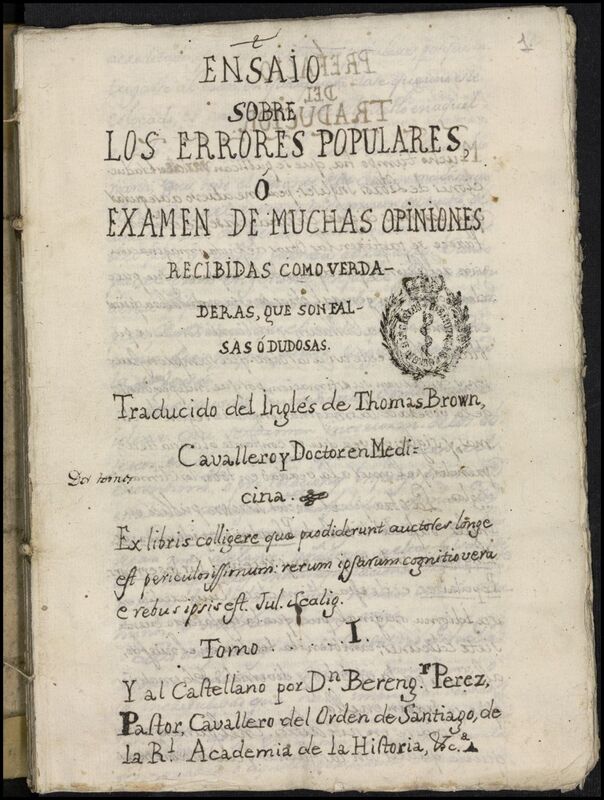 1
ENSAIO
SOBRE
LOS ERRORES POPULARES,
Ó
EXAMEN DE MUCHAS OPINIONES
RECIBIDAS COMO VERDA-
DERAS, QUE SON FAL-
SAS Ó DUDOSAS.
Traducido del Inglés de Thomas Brown,
Cavallero y Doctor en Medi=
cina.
Dos tomos
Ex libris colligere quæ prodiderunt auctores longe
est periculosissimum: rerum ipsarum cognitio vera
e rebus ipsis est. Jul. Scalig.
Tomo . . . I.
Y al Castellano por D.n Bereng.r Perez,
Pastor, Cavallero del Orden de Santiago, de
la R.l Academia de la Historia, &c.a